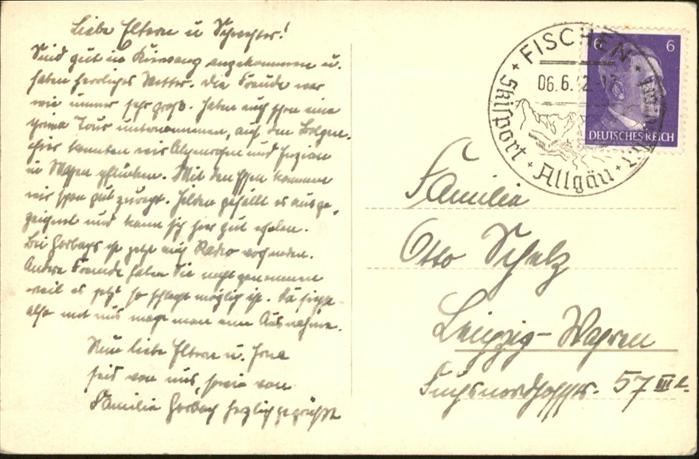 Liebe Eltern u Schwester!
Sind gut in angekommen u.
haben herrliches Wetter. Die Freude war
wie immer sehr groß. Haben auch schon eine
prima Tour unternommen, auf den
hier konnten wir Alpenrosen und Enzian
in Massen pflücken. Mit dem Essen kommen
wir schon gut zurecht. gefällt es ausge-
zeichnet und kann sich hier gut erholen.
Bei Gorbachs ist jetzt auch Radio vorhanden.
Andre Fremde haben Sie nicht genommen
weil es jetzt so schlecht möglich ist.
also mit uns mache man eine Ausnahme.
Nun liebe Eltern u.
seid von uns sowie von
Familie Gorbach herzlich gegrüßt
FISCHEN
06.6.42
Skisport
Allgäu
6
DEUTSCHES REICH
Familie
Otto Scholz
Leipzig-Wahren
57 III